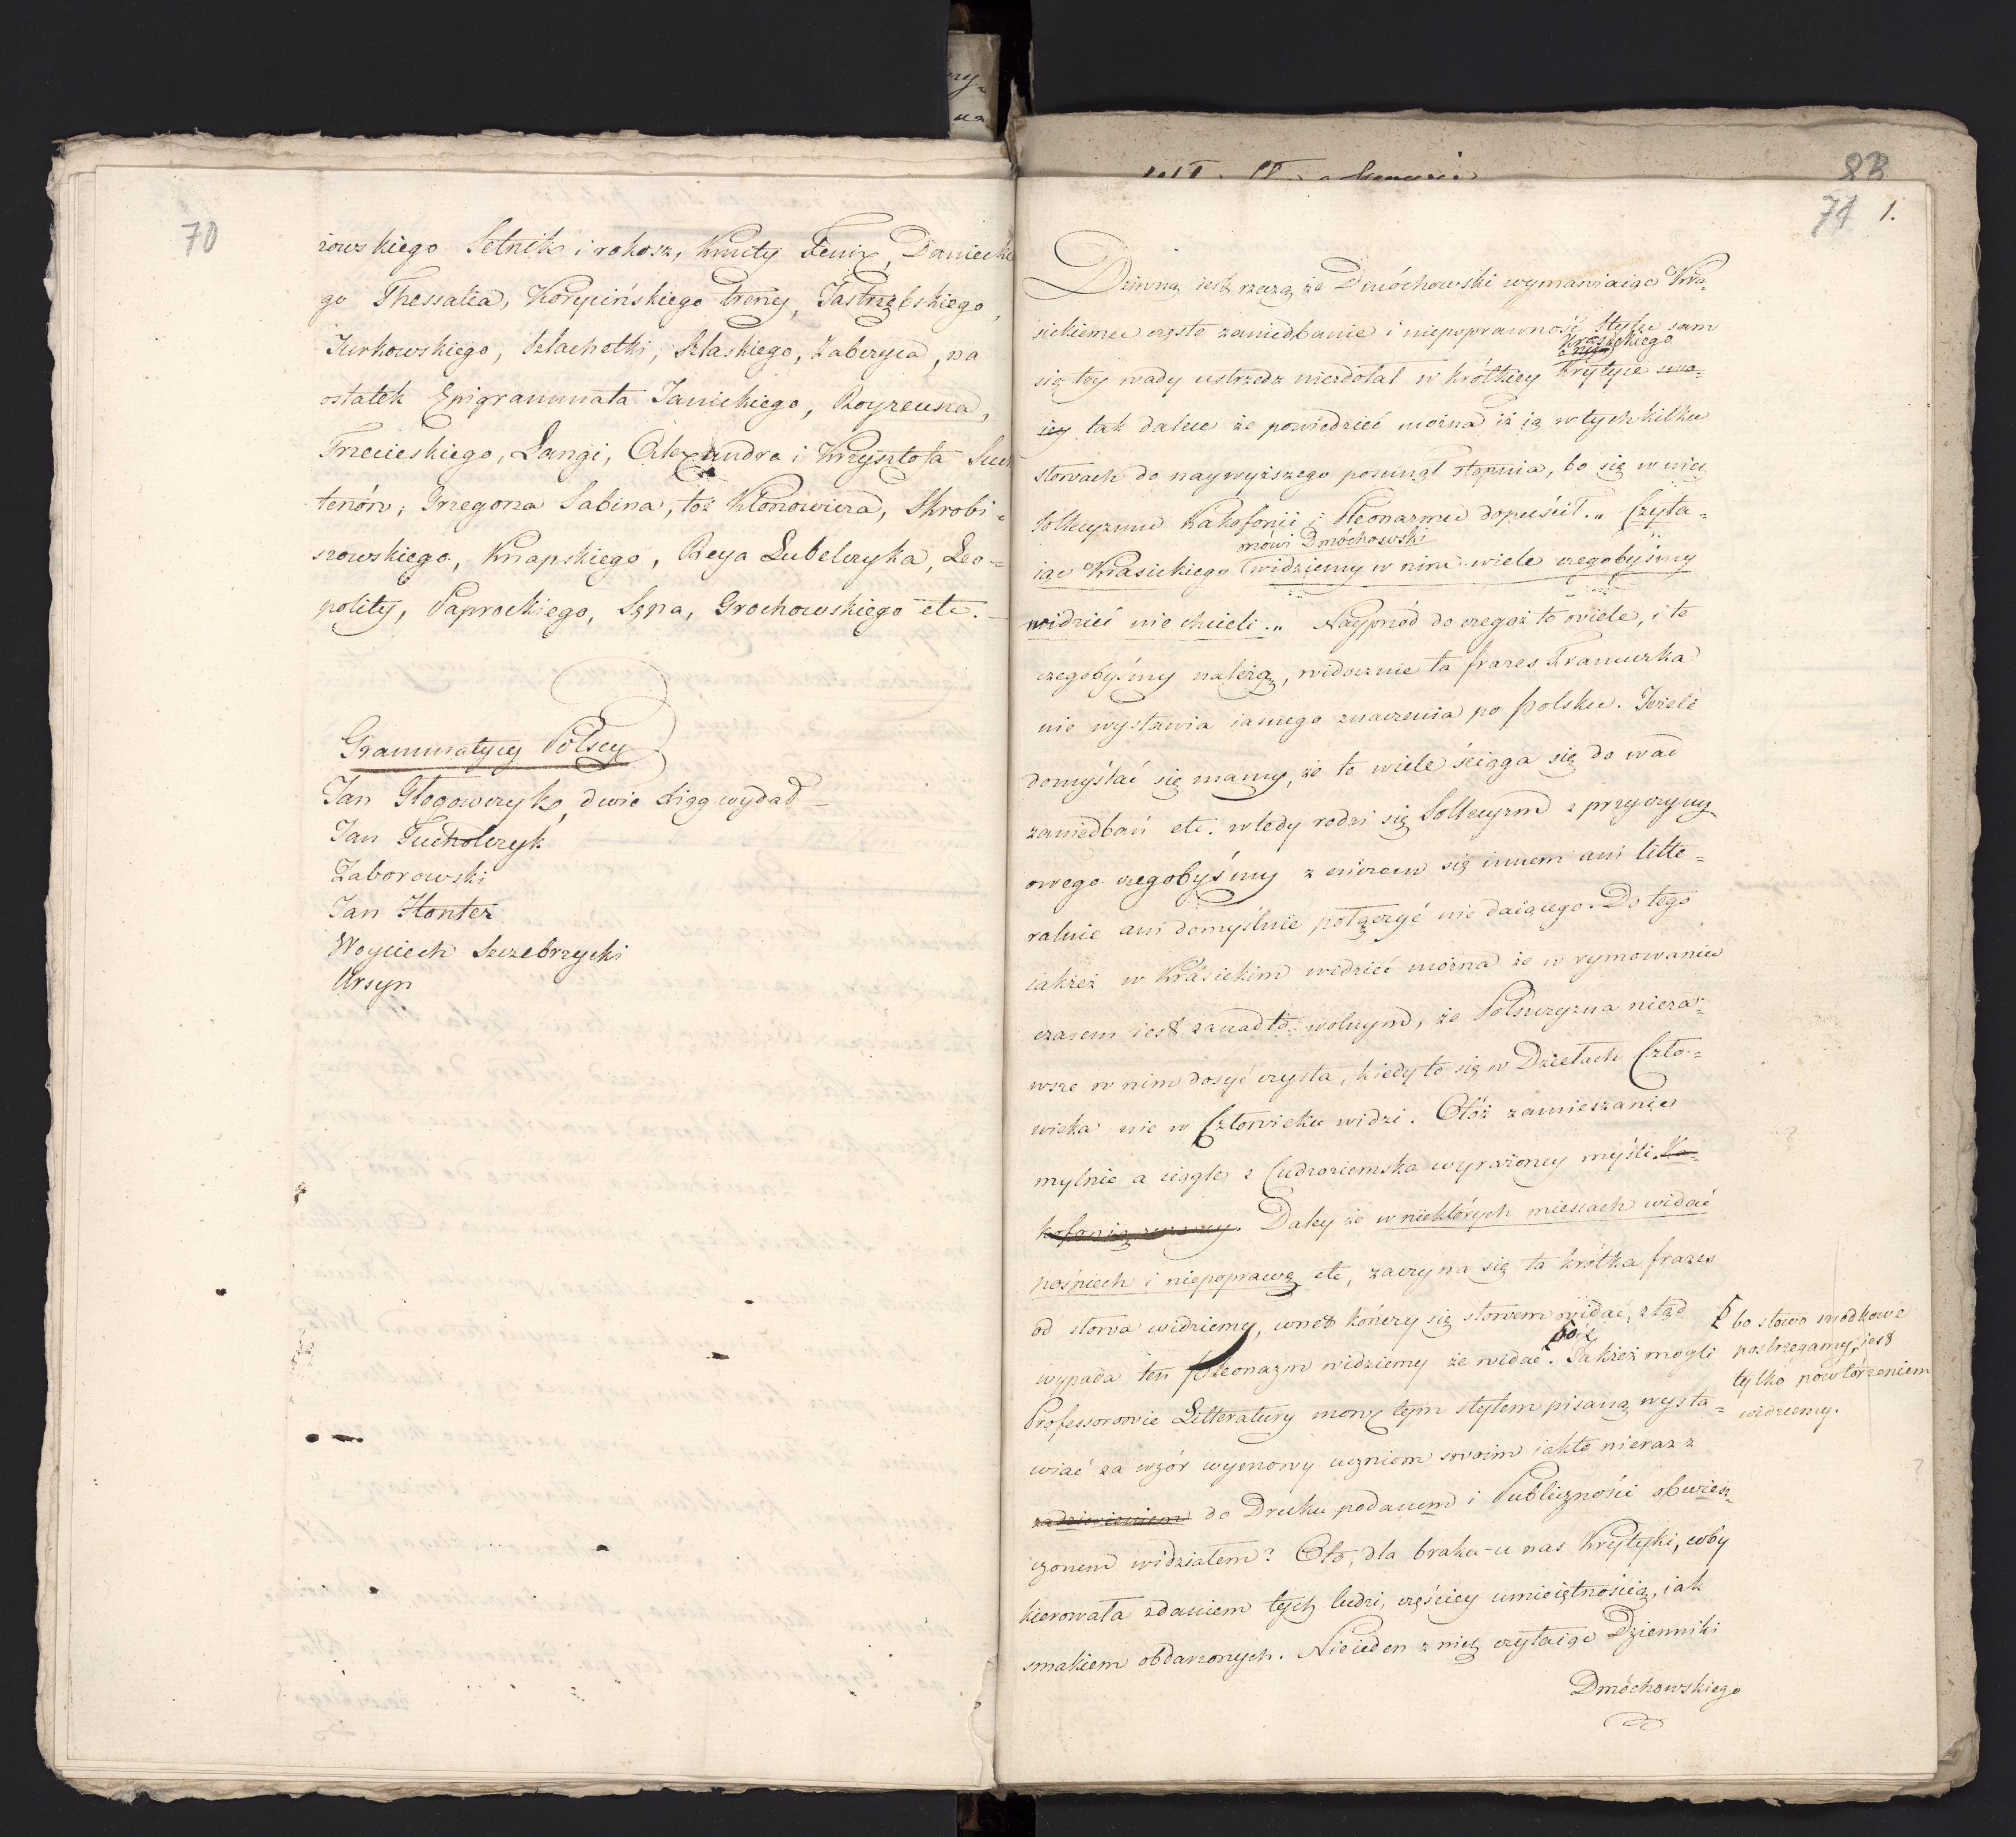 70
rowskiego Setnik i rokosz, Kmity Fenix, Danieckie
go Thessalia, Korycińskiego treny, Jastrzębskiego,
Jurkowskiego, Szlachotki, Szlaskiego, Zabczyca, na
ostatek Epigrammata Janickiego, Royzeusza,
Trzecieskiego, Langi, Alexandra i Krzysztofa Such
tenów; Grzegorza Sabina, toż Klonowicza, Skrobi=
szowskiego, Knapskiego, Reya Lubelczyka, Leo=
polity, Paprockiego, Sępa, Grochowskiego etc.
Grammatycy Polscy
Jan Głogowczyk, dwie ksiąg wydał –
Jan Tucholczyk
Zaborowski
Jan Honter
Woyciech Szczebrzycki
Ursyn
83
71 1.
Dziwną iest rzeczą że Dmóchowski wymawiaiąc Kra=
sickiemu częste zaniedbanie i niepoprawność Stylu sam
Krasickiego
się tey wady ustrzedz niezdołał w krótkiey Krytyce swo=
iey tak dalece że powiedzieć można iż ią w tych kilku
słowach do naywyższego posunął stopnia, bo się w niey
Sollecyzmu Kakofonii i Pleonazmu dopuścił." Czyta=
mówi Dmóchowski
iąc Krasickiego widziemy w nim wiele czegobyśmy
widzieć nie chcieli." Nayprzód do czegoż to wiele, i te
czegobyśmy należą, widocznie ta frazes Francuzka
nie wystawia iasnego znaczenia po polsku. Jeżeli
domyślać się mamy, że to wiele ściąga się do wad
zaniedbań etc. wtedy rodzi się Sollecyzm z przyczyny
owego czegobyśmy z niczem się innem ani litte=
ralnie ani domyślnie połączyć nie daiącego. Do tego
iakżeż w Krasickim widzieć można że w rymowaniu
czasem iest zanadto wolnym, że Polszczyzna nieza=
wsze w nim dosyć czysta, kiedy to się w Dziełach Czło=
wieka nie w Człowieku widzi. Otóż zamieszanie
mylnie a ciągle z Cudzoziemska wyrażoney myśli. Ka=
kofonią . Daley że w niektórych miescach widać
pośpiech i niepoprawę etc, zaczyna się ta krótka frazes
od słowa widziemy, wnet kończy się słowem widać, ztąd
wypada ten Pleonazm widziemy że widać. Jakżeż mogli
bo słowo srodkowe
postrzegamy, jest
tylko powtórzeniem
widziemy.
Professorowie Litteratury mowę tym stylem pisaną wysta=
wiać za wzór wymowy uczniom swoim iakto nieraz z
zadziwieniem do Druku podanem i Publiczności obwiesz=
czonem widziałem? Oto, dla braku u nas Krytyki, coby
kierowała zdaniem tych ludzi, częściey umieiętnością, iak
smakiem obdarzonych. Nieieden z nich czytaiąc Dzienniki
Dmóchowskiego